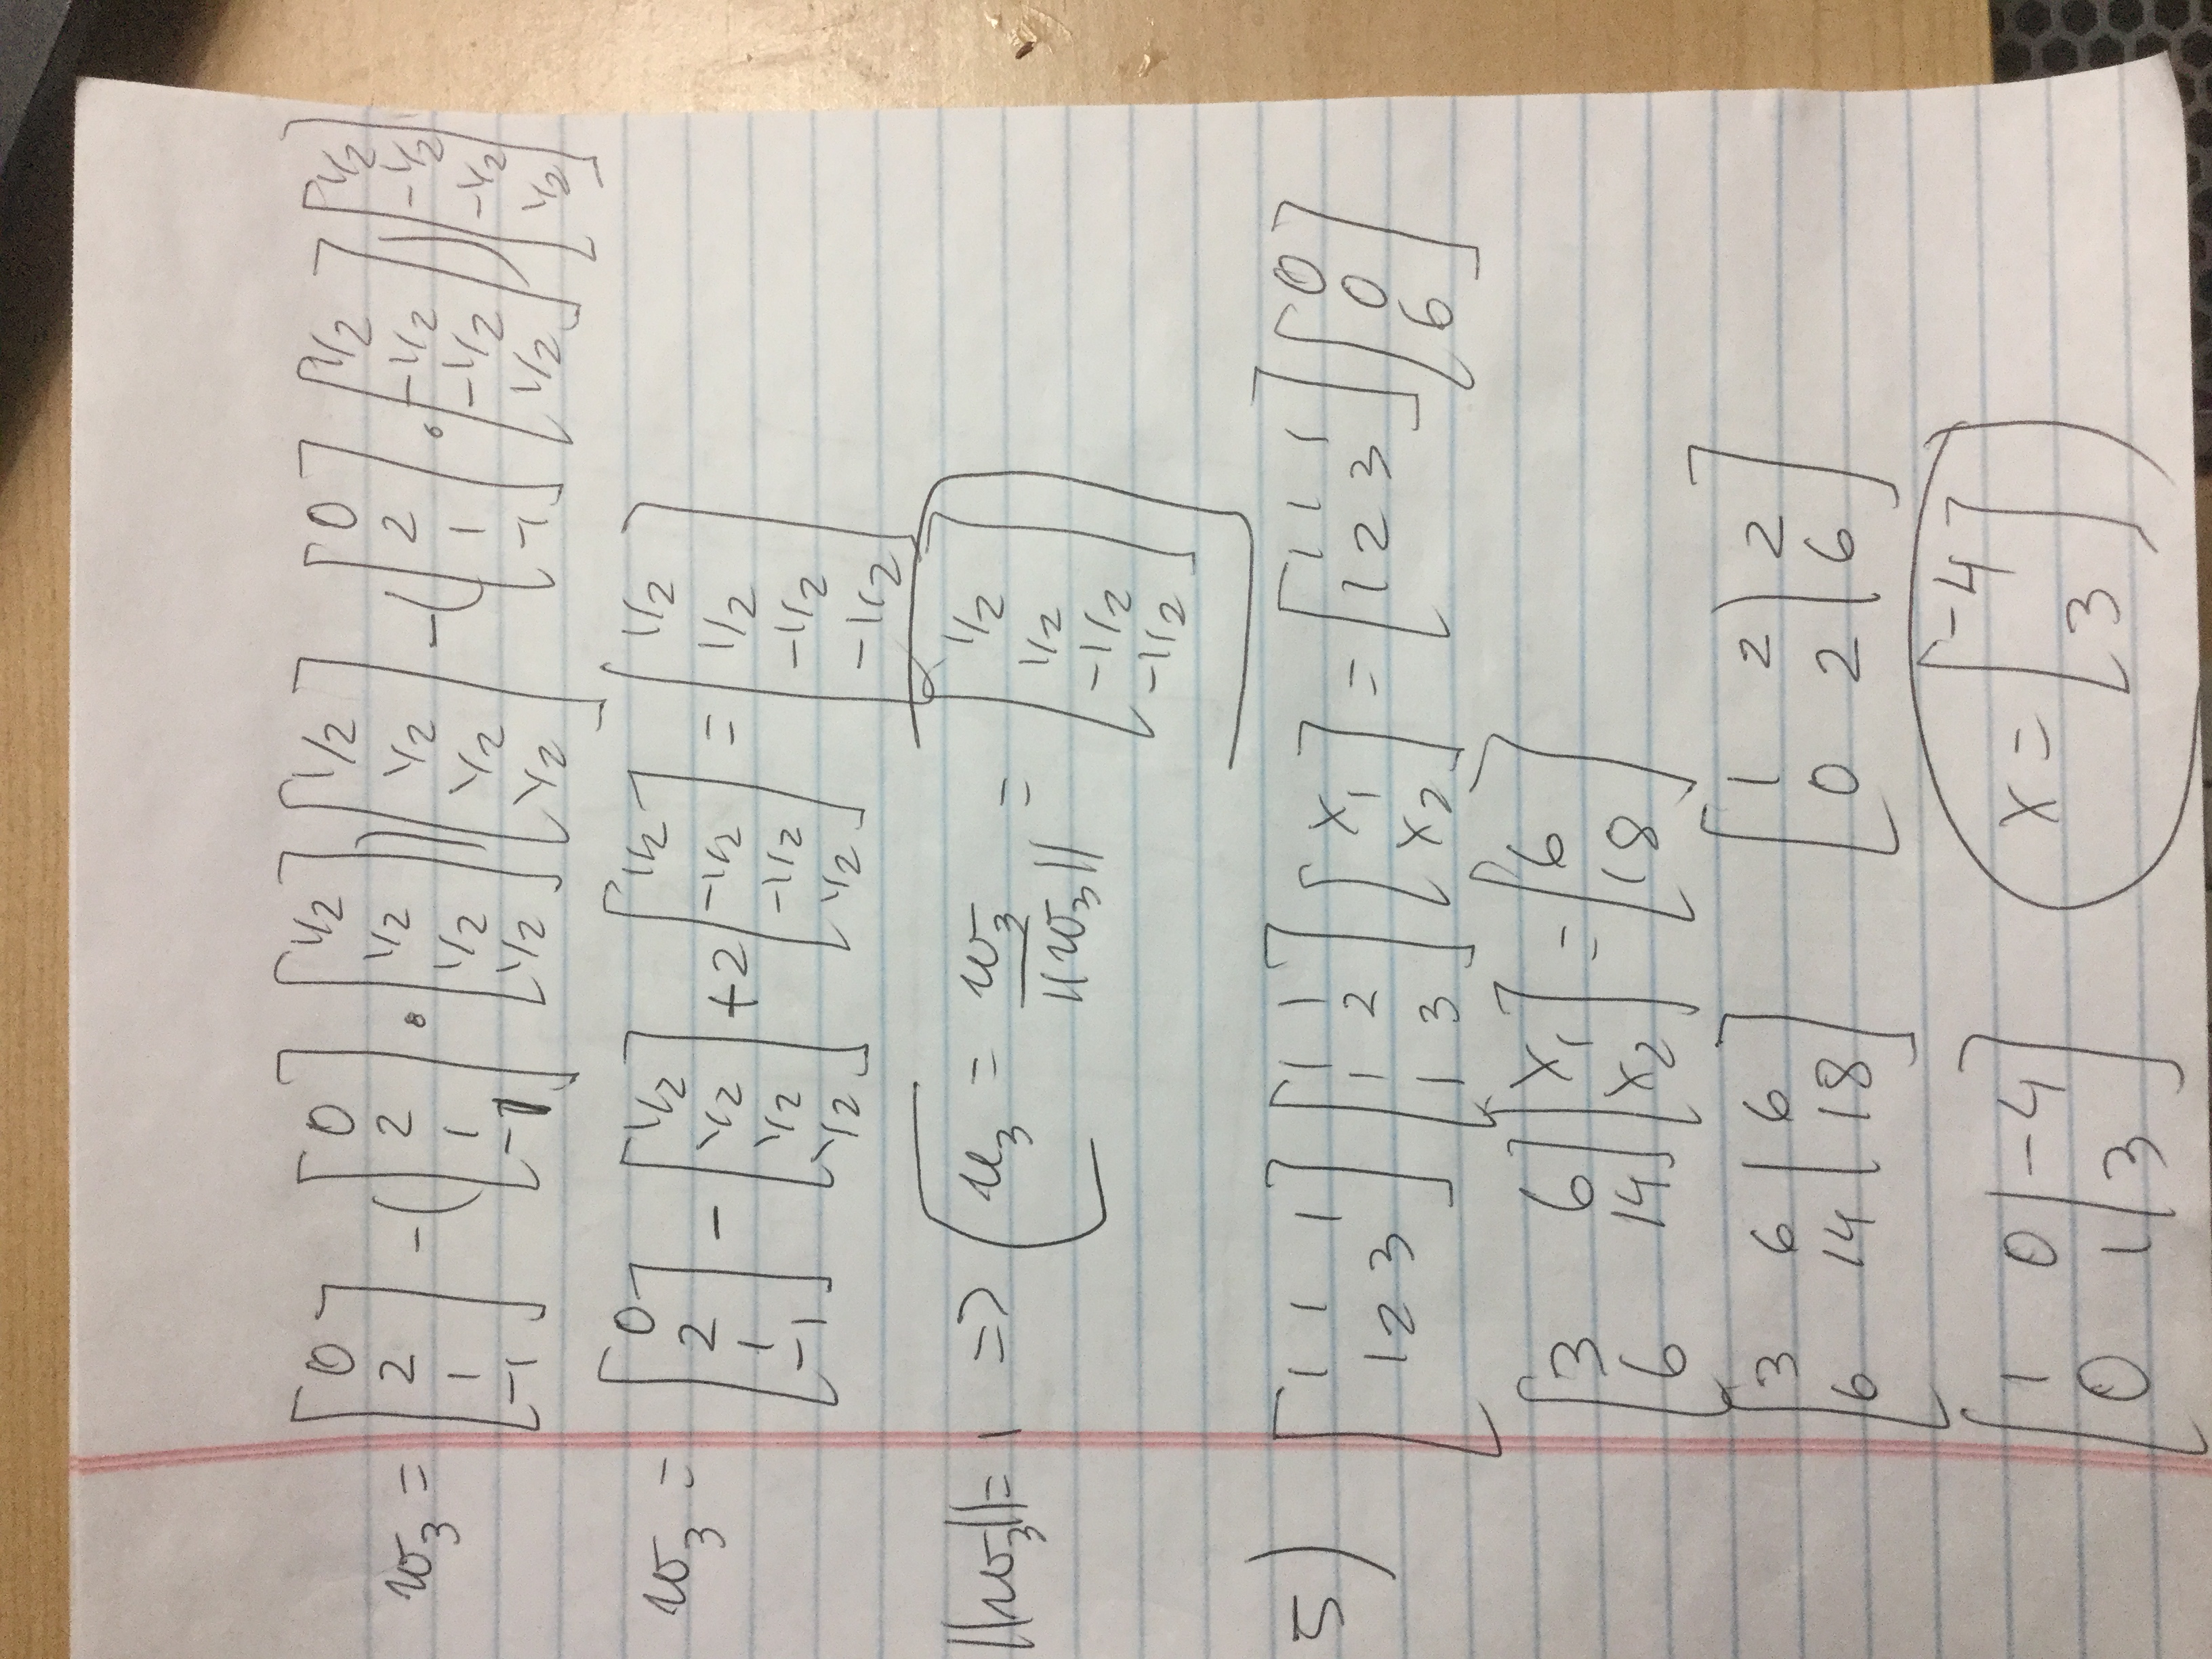 w₃ = [0; 2; 1; -1] - ([0; 2; 1; -1] · [1/2; 1/2; 1/2; 1/2]) [1/2; 1/2; 1/2; 1/2] - ([0; 2; 1; -1] · [1/2; -1/2; -1/2; 1/2]) [1/2; -1/2; -1/2; 1/2]
w₃ = [0; 2; 1; -1] - [1/2; 1/2; 1/2; 1/2] + 2 [1/2; -1/2; -1/2; 1/2] = [1/2; 1/2; -1/2; -1/2]
||w₃|| = 1 => u₃ = w₃/||w₃|| = [1/2; 1/2; -1/2; -1/2]
5) [1 1 1; 1 2 3] [1 1; 1 2; 1 3] [x₁; x₂] = [1 1 1; 1 2 3] [0; 0; 6]
[3 6; 6 14] [x₁; x₂] = [6; 18]
[3 6 | 6; 6 14 | 18] [1 2 | 2; 0 2 | 6]
[1 0 | -4; 0 1 | 3] x = [-4; 3]